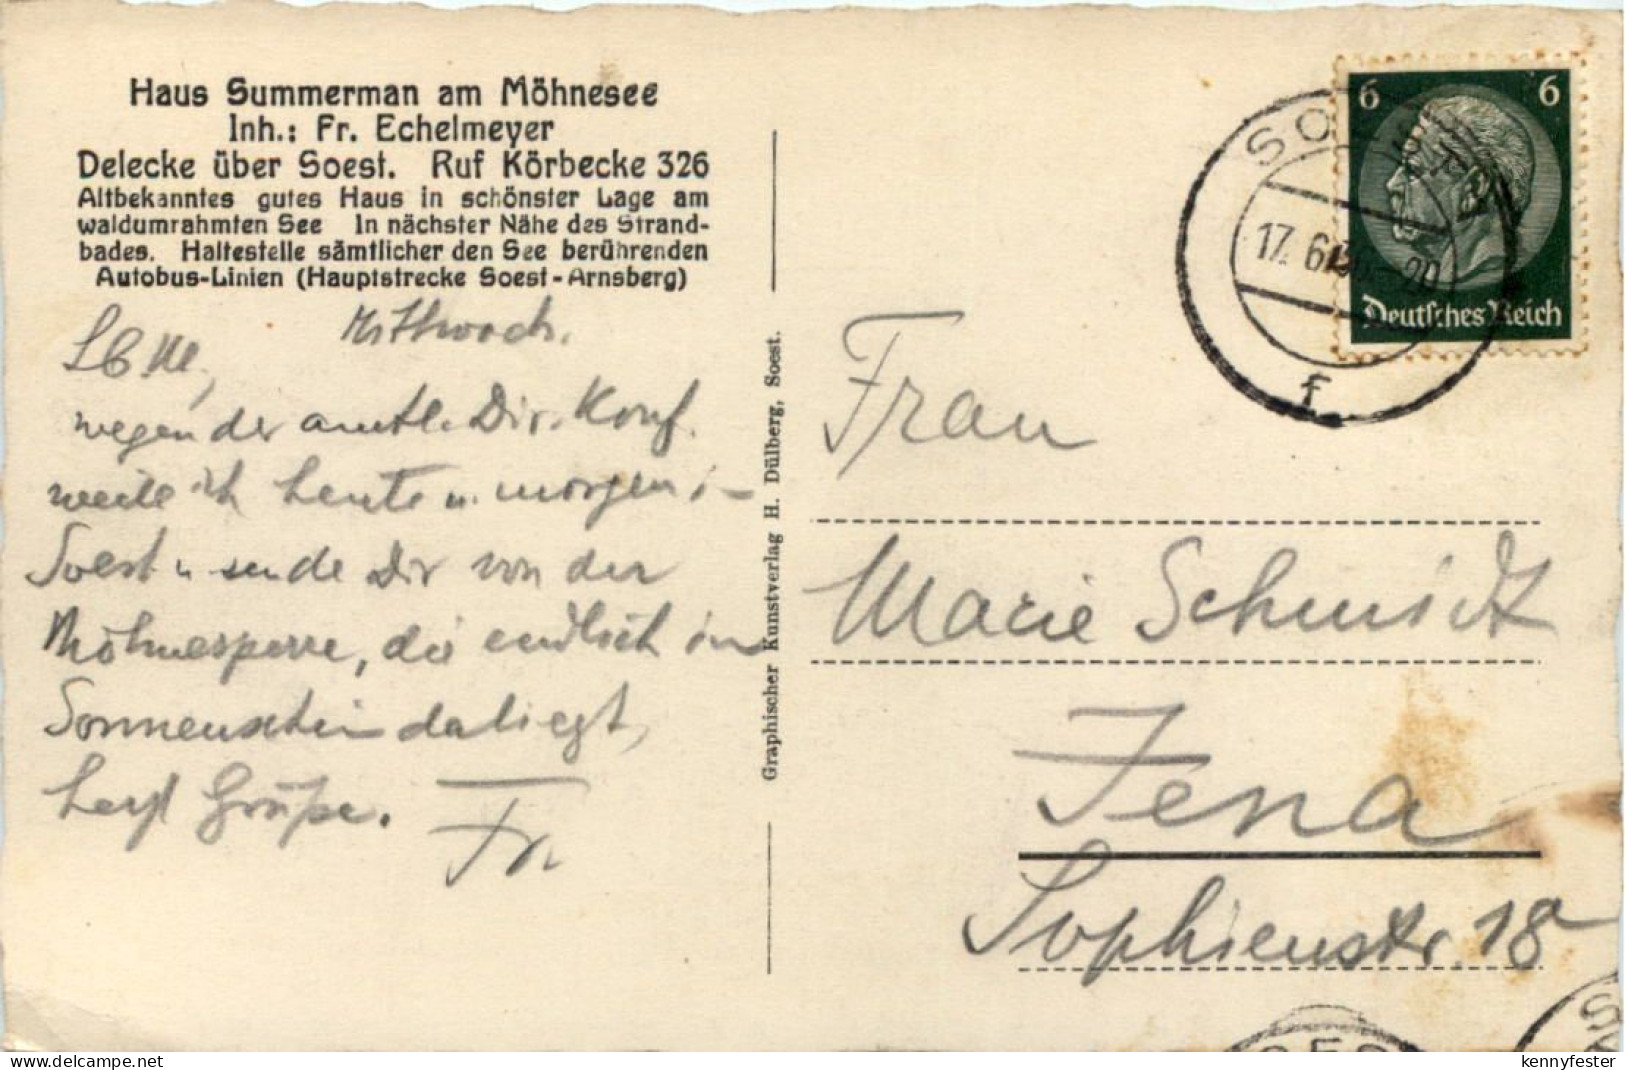 Haus Summerman am Möhnesee
Inh.: Fr. Echelmeyer
Delecke über Soest. Ruf Körbecke 326
Altbekanntes gutes Haus in schönster Lage am
waldumrahmten See In nächster Nähe des Strand-
bades. Haltestelle sämtlicher den See berührenden
Autobus-Linien (Hauptstrecke Soest-Arnsberg)
Mittwoch.
wegen der amtl. Dir. Konf.
weile ich heute u. morgen i
Soest u sende Dir von der
Möhnesperre, die endlich im
Sonnenschein daliegt,
herzl Grüße.
Fr
Graphischer Kunstverlag H. Dülberg, Soest.
6 6
Deutsches Reich
SO
17. 6. -20
f
Frau
Marie Schmidt
Jena
Sophienstr. 18a
delcampe.net
kennyfester